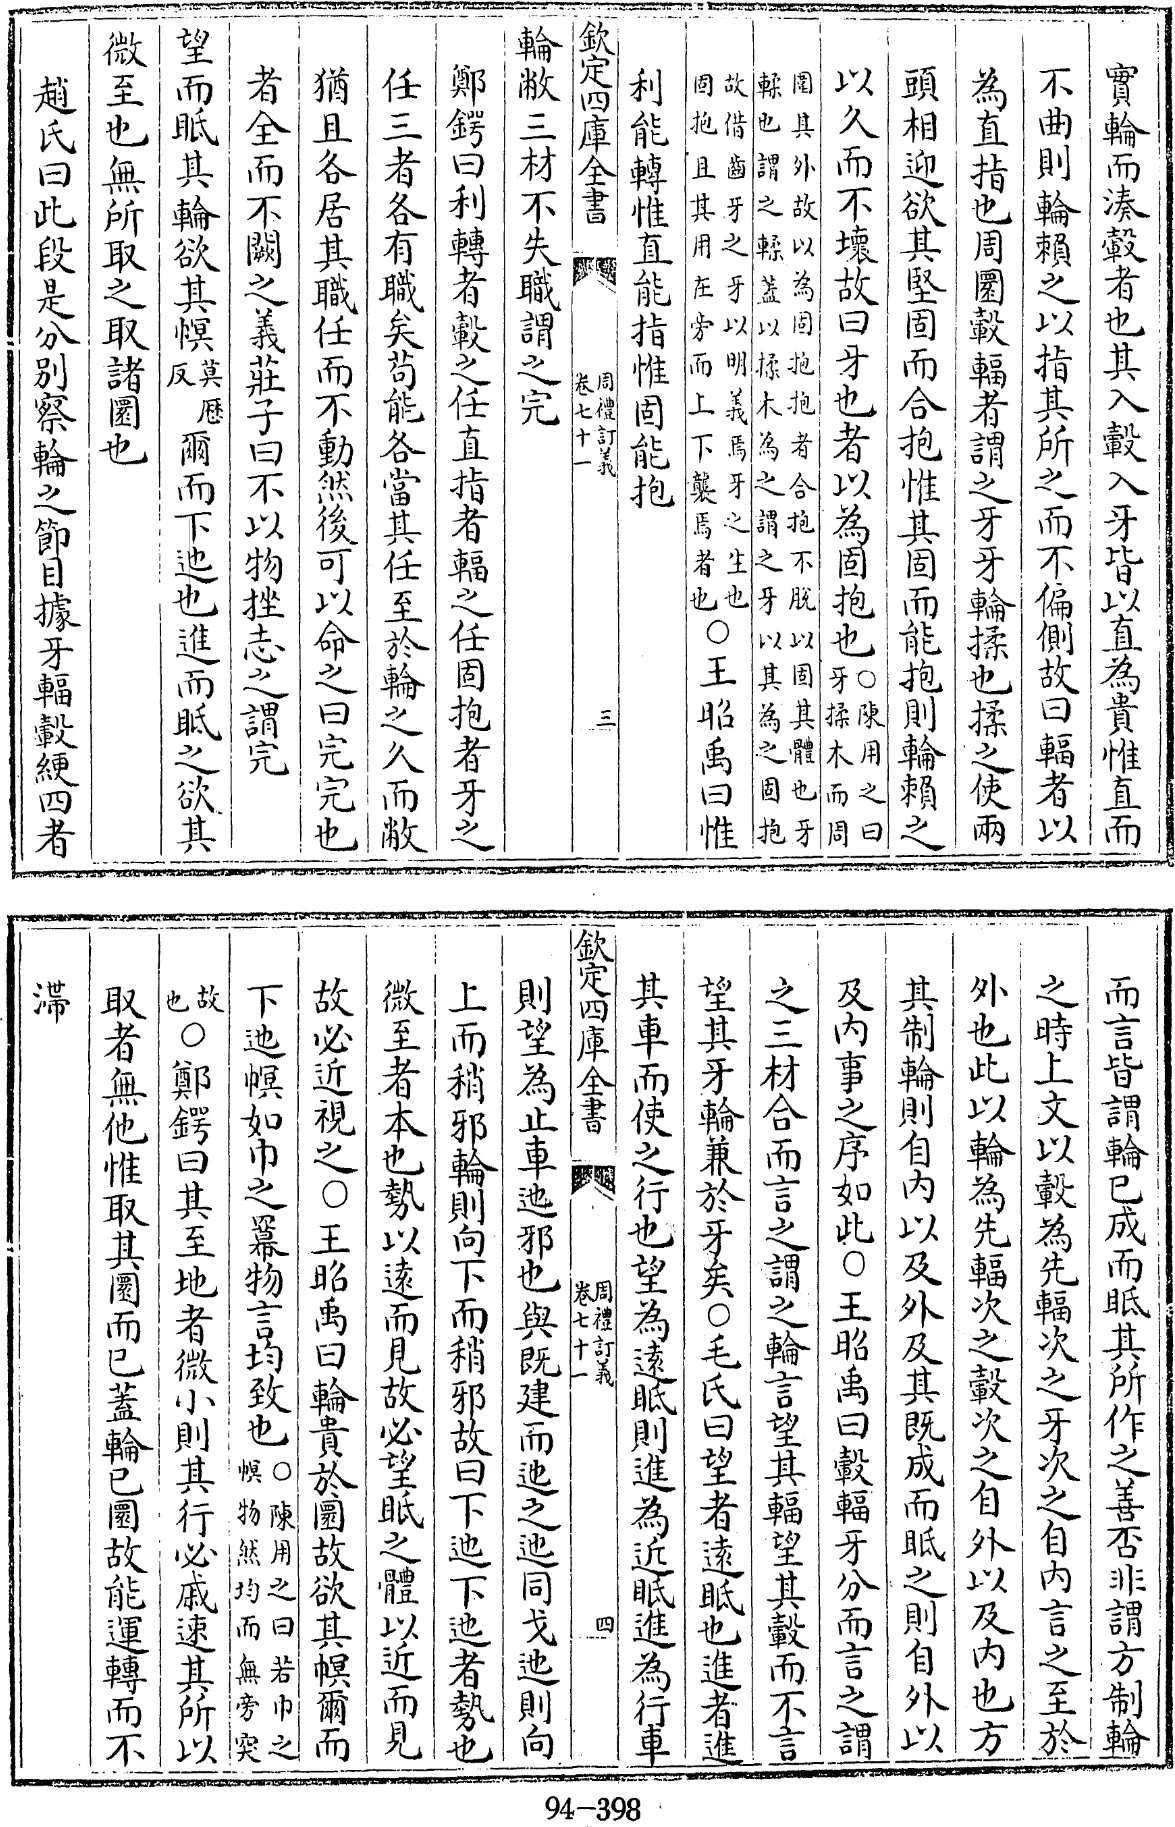 實輪而湊轂者也其入轂入牙皆以直為貴惟直而
不曲則輪賴之以指其所之而不偏側故曰輻者以
為直指也周圜轂輻者謂之牙牙輪揉也揉之使兩
頭相迎欲其堅固而合抱惟其固而能抱則輪賴之
以久而不壞故曰牙也者以為固抱也○陳用之曰
牙揉木而周
圜其外故以為固抱抱者合抱不脱以固其體也牙
輮也謂之輮蓋以揉木為之謂之牙以其為之固抱
故借齒牙之牙以明義焉牙之生也
固抱且其用在旁而上下襲焉者也○王昭禹曰惟
利能轉惟直能指惟固能抱
欽定四庫全書
周禮訂義
卷七十一
三
輪敝三材不失職謂之完
鄭鍔曰利轉者轂之任直指者輻之任固抱者牙之
任三者各有職矣苟能各當其任至於輪之久而敝
猶且各居其職任而不動然後可以命之曰完完也
者全而不闕之義莊子曰不以物挫志之謂完
望而眡其輪欲其幎莫歷
反爾而下迆也進而眡之欲其
微至也無所取之取諸圜也
趙氏曰此段是分别察輪之節目據牙輻轂綆四者
而言皆謂輪已成而眡其所作之善否非謂方制輪
之時上文以轂為先輻次之牙次之自内言之至於
外也此以輪為先輻次之轂次之自外以及内也方
其制輪則自内以及外及其既成而眡之則自外以
及内事之序如此○王昭禹曰轂輻牙分而言之謂
之三材合而言之謂之輪言望其輻望其轂而不言
望其牙輪兼於牙矣○毛氏曰望者遠眡也進者進
其車而使之行也望為遠眡則進為近眡進為行車
欽定四庫全書
周禮訂義
卷七十一
四
則望為止車迆邪也與既建而迆之迆同戈迆則向
上而稍邪輪則向下而稍邪故曰下迆下迆者勢也
微至者本也勢以遠而見故必望眡之體以近而見
故必近視之○王昭禹曰輪貴於圜故欲其幎爾而
下迆幎如巾之羃物言均致也○陳用之曰若巾之
幎物然均而無旁突
故
也○鄭鍔曰其至地者微小則其行必戚速其所以
取者無他惟取其圜而已蓋輪已圜故能運轉而不
滯
94-398